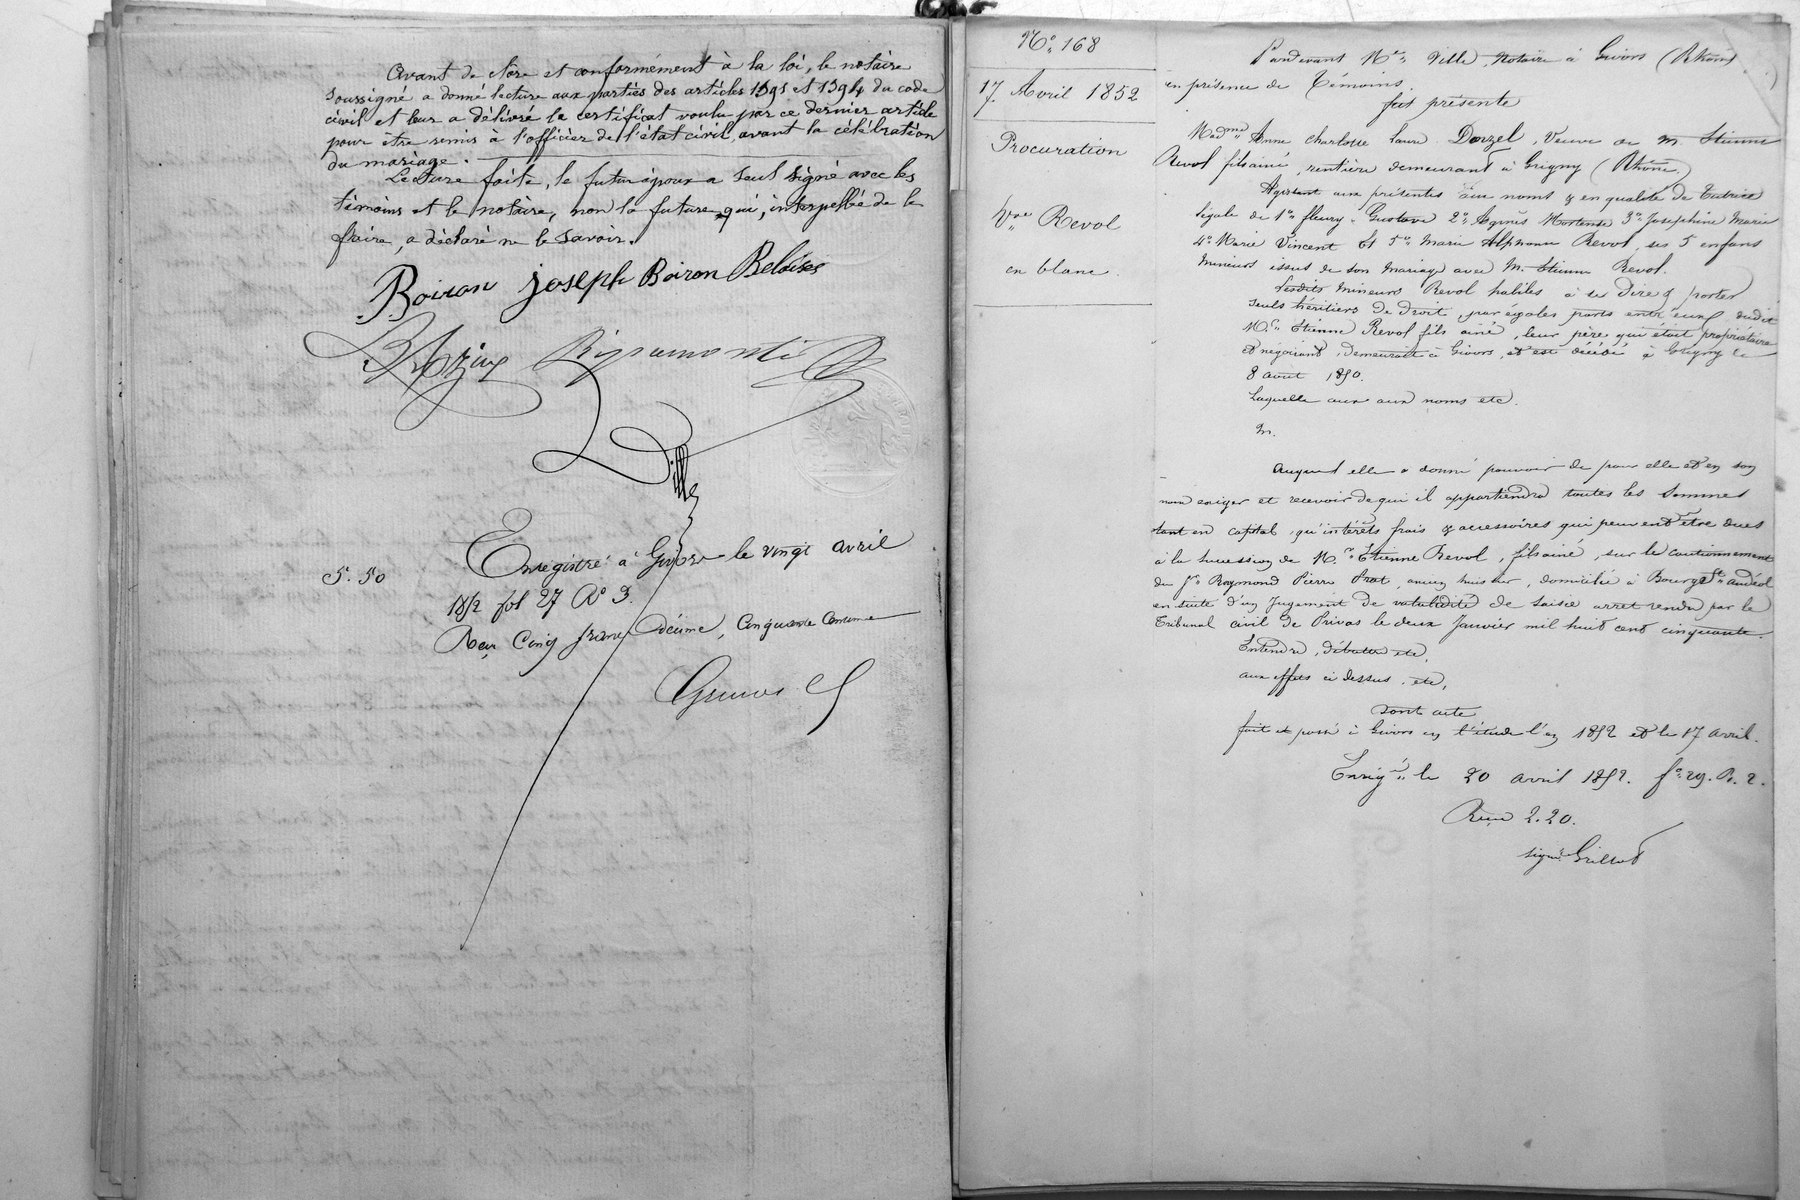 Avant de clore et conformément à la loi, le notaire
soussigné a donné lecture aux parties des articles 1391 et 1394 du code
civil et leur a délivré le certificat voulu par ce dernier article
pour être remis à l'officier de l'état civil, avant la célébration
du mariage.
Lecture faite, le futur époux a seul signé avec les
témoins et le notaire, non la future qui, interpellée de le
faire, a déclaré ne le savoir.
Boiron joseph Boiron
Ripamonti
Ville
Enregistré à Givors le vingt avril
5. 50
1852 fol 27 Ro 3.
Reçu Cinq francs décime, Cinquante Centime
No 168
17 Avril 1852
Procuration
Vve Revol
en blanc
Pardevant Me Ville, Notaire à Givors (Rhône)
en présence de Témoins
fut présente
Madme Anne Charlotte Laure Dorzel, Veuve de M. Etienne
Revol fils ainé, rentière demeurant à Grigny (Rhône)
Agissant aux présentes aux noms & en qualité de Tutrice
légale de 1o fleury-Gustave 2o Agnès Hortense 3o Joséphine Marie
4o Marie Vincent Et 5o Marie Alphonse Revol, ses 5 enfans
Mineurs issus de son Mariage avec M. Etienne Revol.
Lesdits Mineurs Revol habiles à se dire & porter
seuls héritiers de droit, par égales parts entr'eux, dudit
Mr Etienne Revol fils ainé, leur père, qui était propriétaire
et négociant, demeurant à Givors, et est décédé à Grigny le
8 aout 1850.
Laquelle aux noms etc.
M.
Auquel elle a donné pouvoir de pour elle et en son
nom exiger et recevoir de qui il appartiendra toutes les sommes
tant en capital, qu'intérêts frais & accessoires qui peuvent être dues
à la succession de Mr Etienne Revol, fils ainé, sur le cautionnement
du Sr Raymond Pierre Prat, ancien huissier, domicilié à Bourg St Andéol
en suite d'un Jugement de validité de saisie arret rendu par le
Tribunal civil de Privas le deux Janvier mil huit cent cinquante.
Entendre, débattre etc,
aux effets ci dessus, etc,
Dont acte
fait et passé à Givors en l'étude l'an 1852 et le 17 avril.
Enrigé le 20 avril 1852. fo 29. R. 2.
Reçu 2.20.
signé